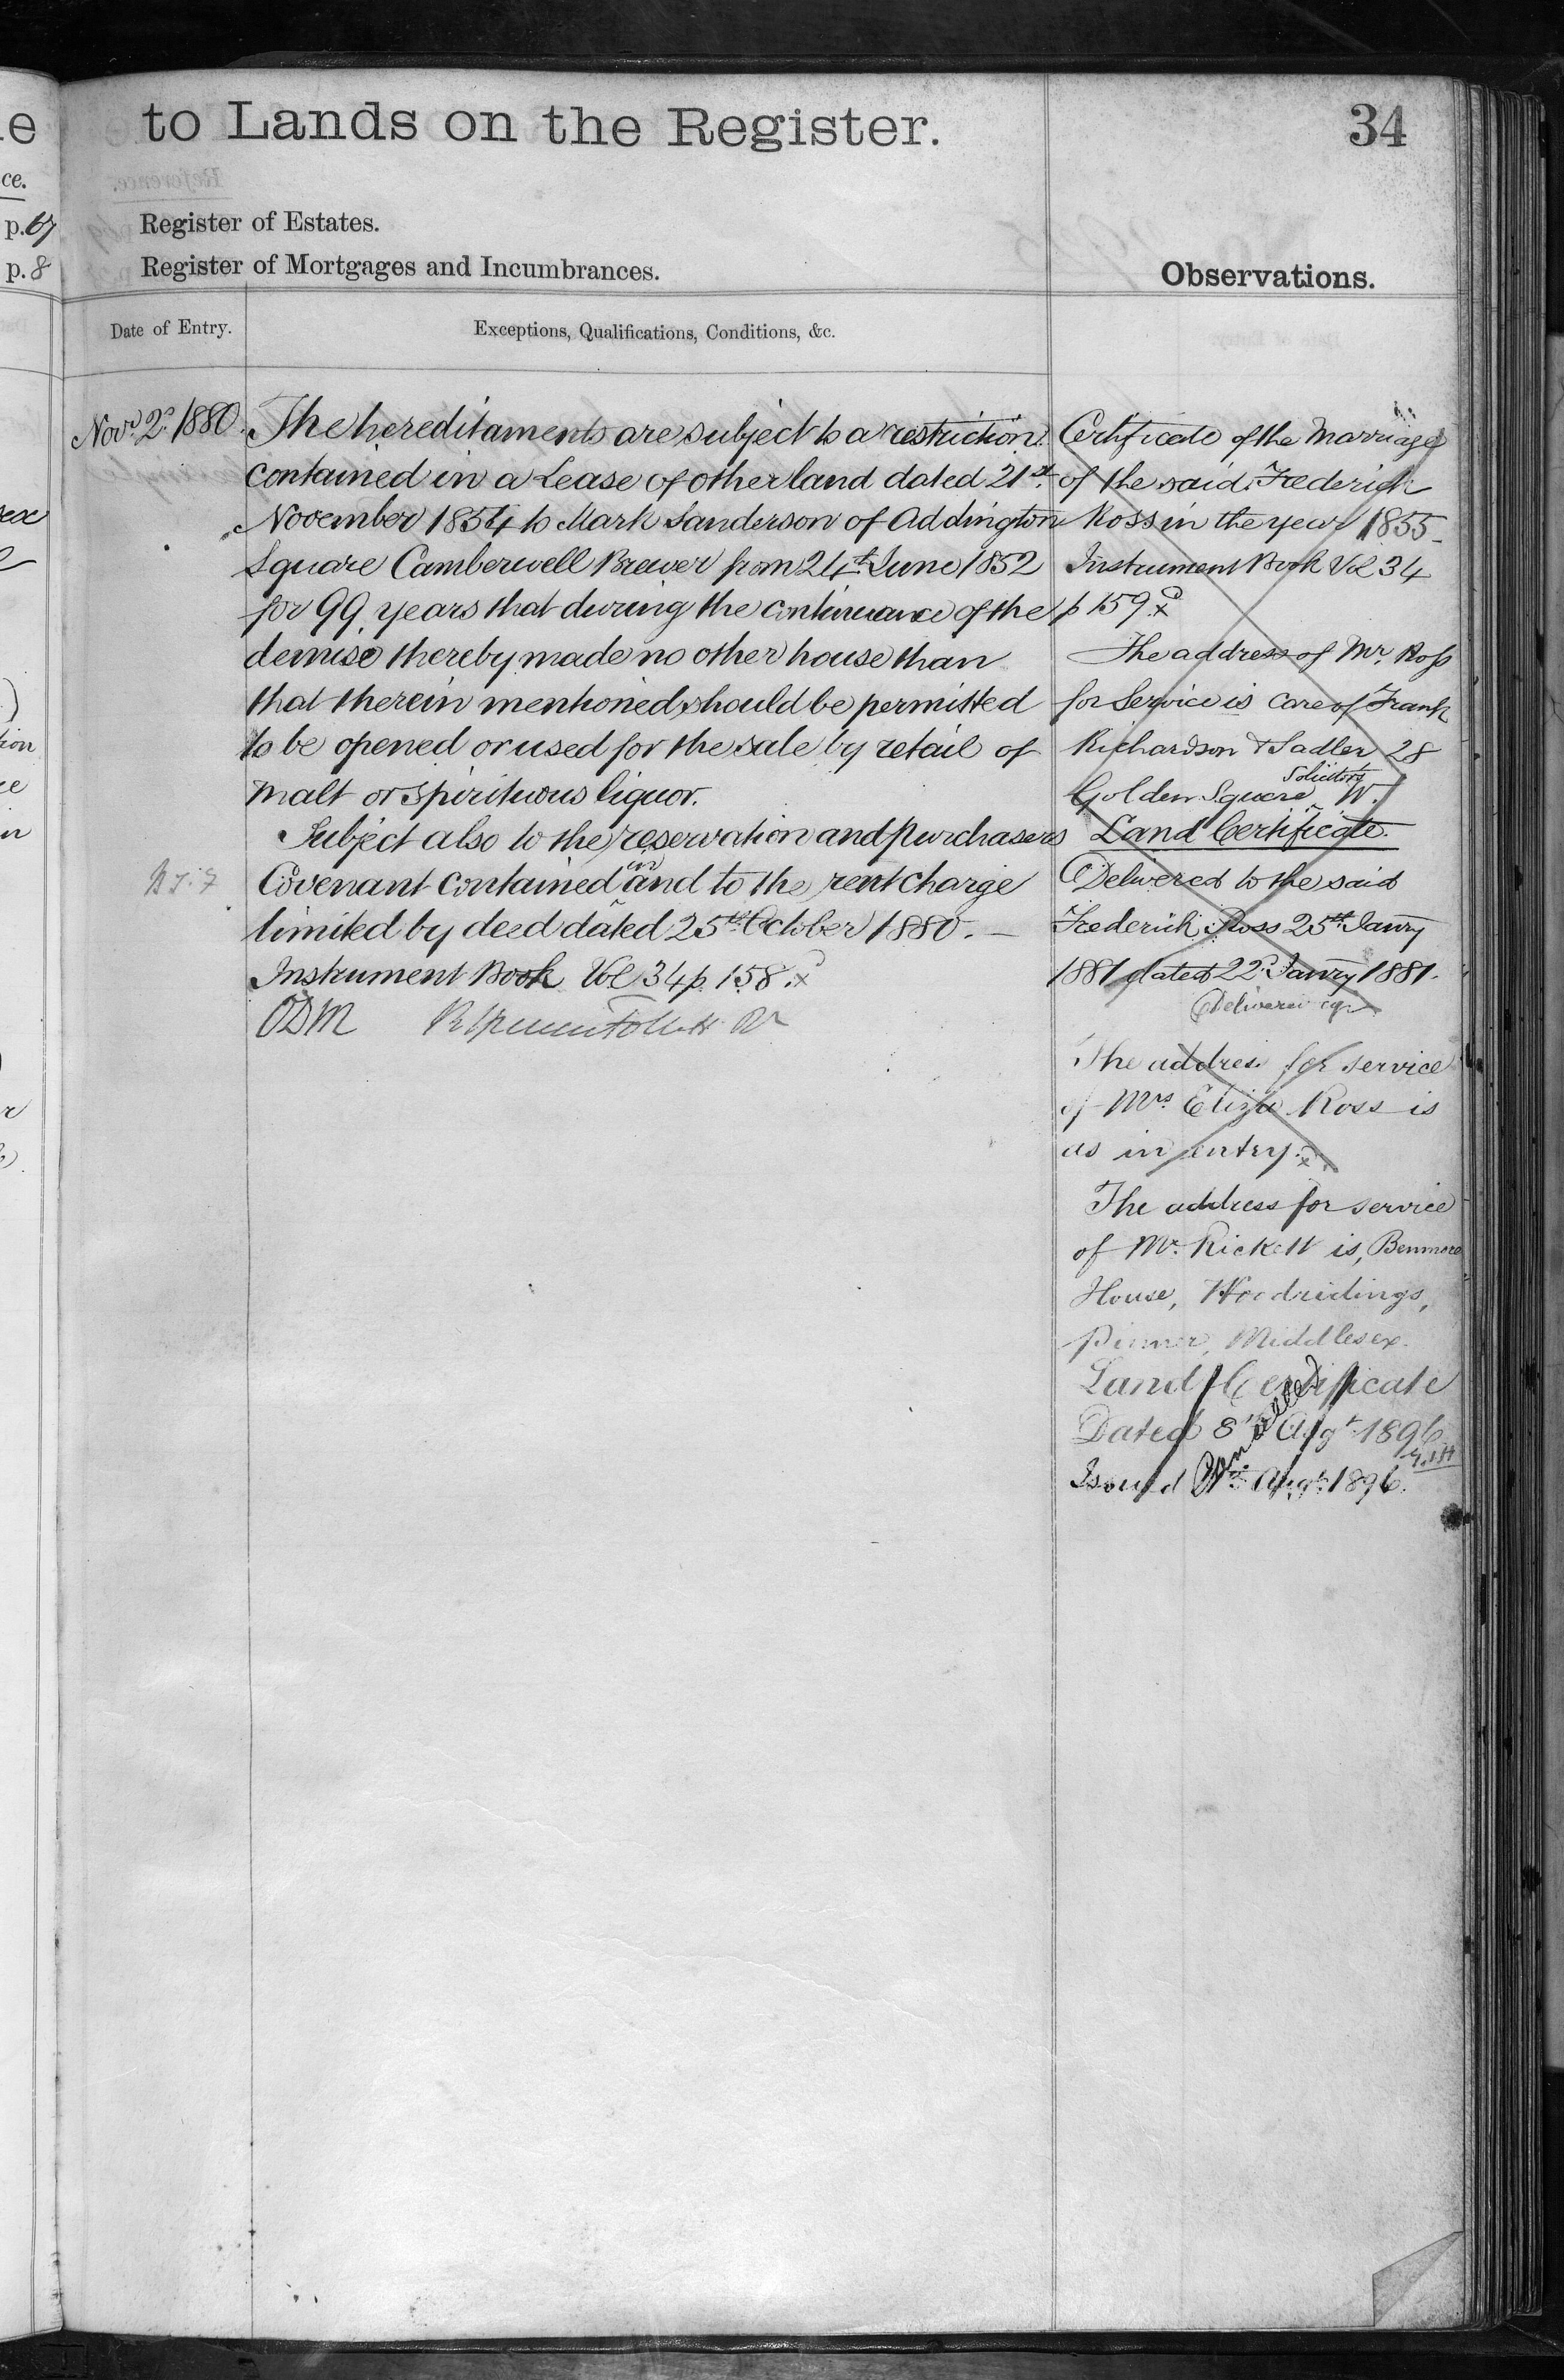 to Lands on the Register.
34
Register of Estates.
Register of Mortgages and Incumbrances.
Observations.
ce.
p. 67
p. 8
Date of Entry.
Exceptions, Qualifications, Conditions, &c.
Novr. 2d. 1880.
The hereditaments are subject to a restriction
contained in a Lease of other land dated 21st
November 1854 to Mark Sanderson of Addington
Square Camberwell Brewer from 24th June 1852
for 99 years that during the continuance of the
demise thereby made no other house than
that therein mentioned should be permitted
to be opened or used for the sale by retail of
malt or spirituous liquor.
Subject also to the reservation and purchasers
Covenant contained in and to the rent charge
limited by deed dated 25th October 1880. —
Instrument Book Vol 34 p. 158. x
ODM
Certificate of the Marriage
of the said Frederick
Ross in the year 1855_
Instrument Book Vol 34
p 159. x
The address of Mr. Ross
for Service is care of Frank
Richardson & Sadler 28
Golden Square Solicitors W.
Land Certificate.
Delivered to the said
Frederick Ross 25th Janry
1881 dated 22d. Janry 1881.
Delivered up
The address for service
of Mrs. Eliza Ross is
as in entry. x
The address for service
of Mr. Rickett is, Benmore
House, Woodridings,
Pinner, Middlesex.
Land Certificate
Dated 8th Augt 1896
Cancelled
Issued Augt. 1896.